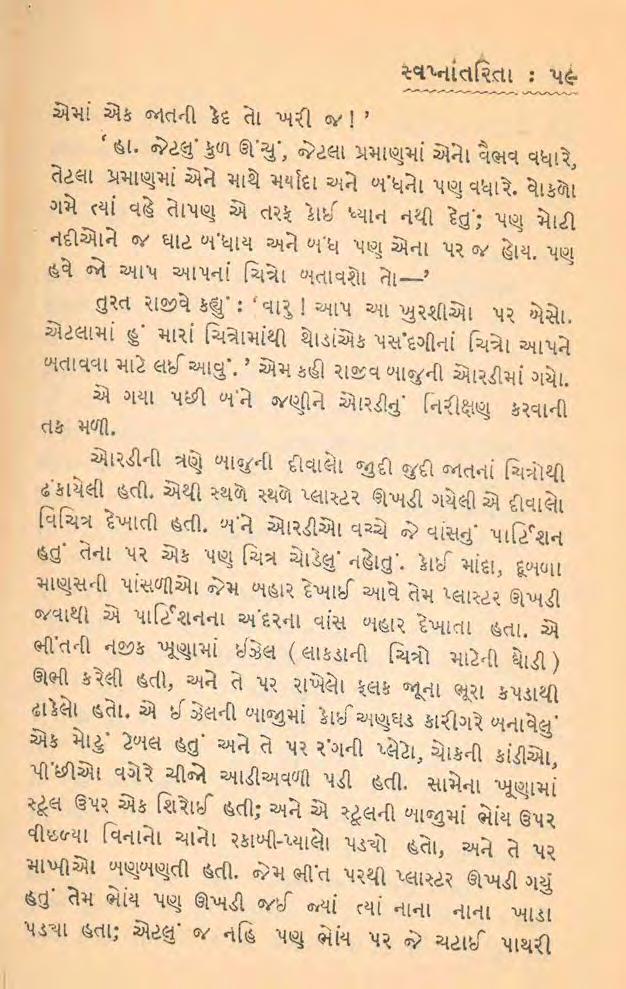 સ્વપ્નાંતરિતા : ૫૯
એમાં એક જાતની કેદ તો ખરી જ ! ’
‘ હા. જેટલું કુળ ઊંચું, જેટલા પ્રમાણમાં એનો વૈભવ વધારે,
તેટલા પ્રમાણમાં એને માથે મર્યાદા અને બંધનો પણ વધારે. વોકળો
ગમે ત્યાં વહે તોપણ એ તરફ કોઈ ધ્યાન નથી દેતું; પણ મોટી
નદીઓને જ ઘાટ બંધાય અને બંધ પણ એના પર જ હોય. પણ
હવે જો આપ આપનાં ચિત્રો બતાવશો તો—’
તુરત રાજીવે કહ્યું : ‘ વારુ ! આપ આ ખુરશીઓ પર બેસો.
એટલામાં હું મારાં ચિત્રોમાંથી થોડાંએક પસંદગીનાં ચિત્રો આપને
બતાવવા માટે લઈ આવું. ’ એમ કહી રાજીવ બાજુની ઓરડીમાં ગયો.
એ ગયા પછી બંને જણીને ઓરડીનું નિરીક્ષણ કરવાની
તક મળી.
ઓરડીની ત્રણે બાજુની દીવાલો જુદી જુદી જાતનાં ચિત્રોથી
ઢંકાયેલી હતી. એથી સ્થળે સ્થળે પ્લાસ્ટર ઊખડી ગયેલી એ દીવાલો
વિચિત્ર દેખાતી હતી. બંને ઓરડીઓ વચ્ચે જે વાંસનું પાર્ટિશન
હતું તેના પર એક પણ ચિત્ર ચોડેલું નહોતું. કોઈ માંદા, દૂબળા
માણસની પાંસળીઓ જેમ બહાર દેખાઈ આવે તેમ પ્લાસ્ટર ઊખડી
જવાથી એ પાર્ટિશનના અંદરના વાંસ બહાર દેખાતા હતા. એ
ભીંતની નજીક ખૂણામાં ઈઝેલ ( લાકડાની ચિત્રો માટેની ઘોડી )
ઊભી કરેલી હતી, અને તે પર રાખેલો ફલક જૂના ભૂરા કપડાથી
ઢાકેલો હતો. એ ઈઝેલની બાજુમાં કોઈ અણઘડ કારીગરે બનાવેલું
એક મોટું ટેબલ હતું અને તે પર રંગની પ્લેટો, ચોકની કાંડીઓ,
પીંછીઓ વગેરે ચીજો આડીઅવળી પડી હતી. સામેના ખૂણામાં
સ્ટૂલ ઉપર એક શિરોઈ હતી; અને એ સ્ટૂલની બાજુમાં ભોંય ઉપર
વીછળ્યા વિનાનો ચાનો રકાબી-પ્યાલો પડ્યો હતો, અને તે પર
માખીઓ બણબણતી હતી. જેમ ભીંત પરથી પ્લાસ્ટર ઊખડી ગયું
હતું તેમ ભોંય પણ ઊખડી જઈ જ્યાં ત્યાં નાના નાના ખાડા
પડ્યા હતા; એટલું જ નહિ પણ ભોંય પર જે ચટાઈ પાથરી